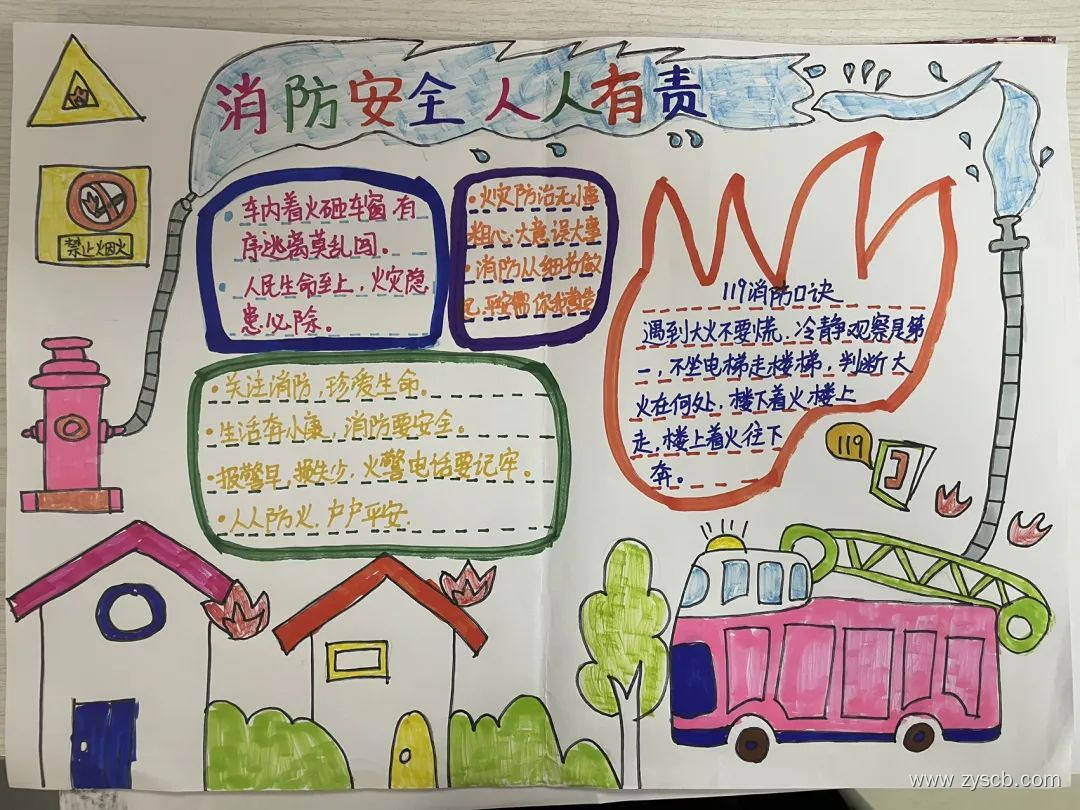 消防安全人人有责
禁止烟火
车内着火砸车窗,有
序逃离莫乱闯。
人民生命至上,火灾隐
患必除。
火灾防治无小事
粗心大意误大事
消防从细节做
起,平安需你我营造
119消防口诀
遇到大火不要慌,冷静观察是第
一,不坐电梯走楼梯,判断大
火在何处,楼下着火楼上
走,楼上着火往下
奔。
关注消防,珍爱生命。
生活奔小康,消防要安全。
报警早,损失少,火警电话要记牢。
人人防火,户户平安.
119
www.zyscb.com